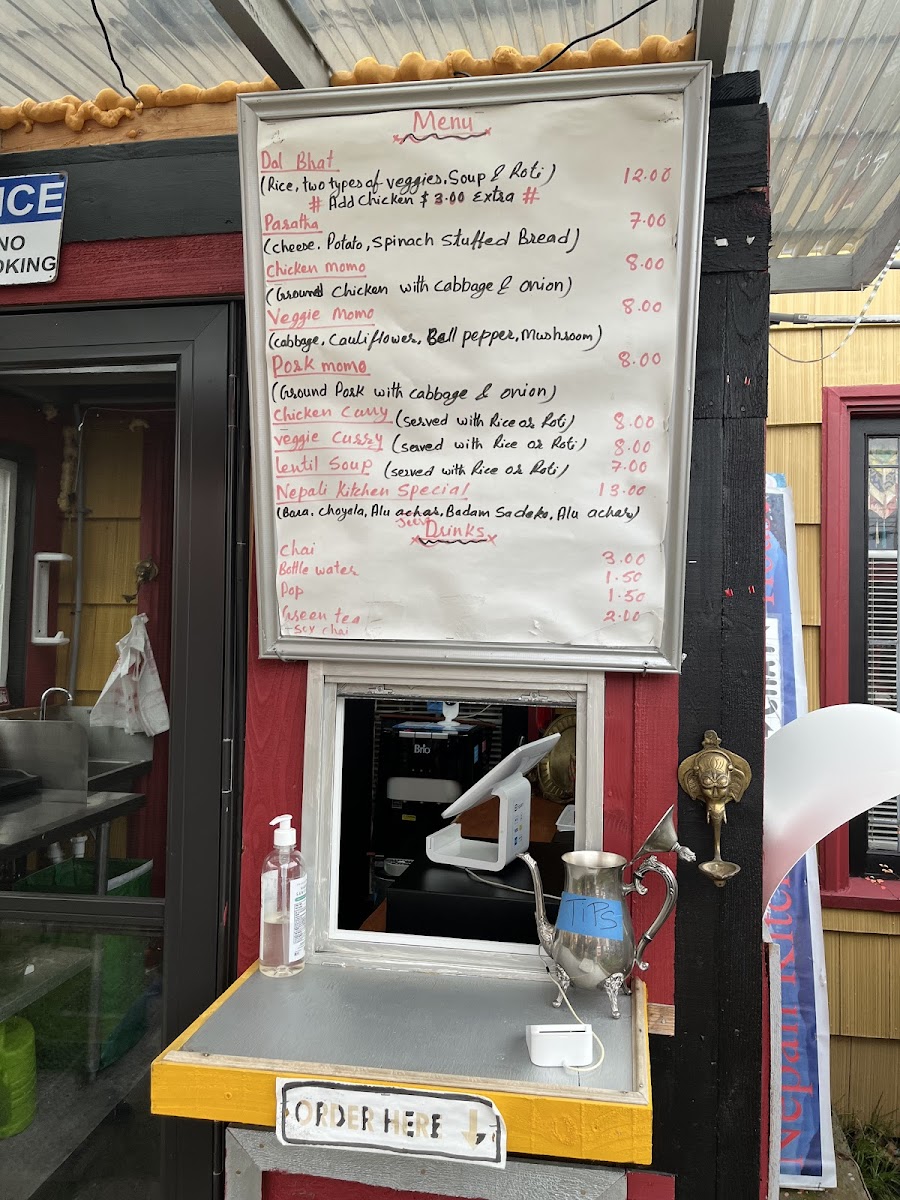 ICE
NO
OKING
Menu
Dal Bhat
(Rice, two types of veggies, Soup & Roti) 12.00
# Add Chicken $ 3.00 Extra #
Paratha 7.00
(cheese, Potato, Spinach Stuffed Bread)
Chicken momo 8.00
(Ground Chicken with cabbage & onion)
Veggie Momo 8.00
(cabbage, Cauliflower, Bell pepper, Mushroom)
Pork momo 8.00
(Ground Pork with cabbage & onion)
Chicken Curry (served with Rice or Roti) 8.00
veggie Curry (served with Rice or Roti) 8.00
lentil Soup (served with Rice or Roti) 7.00
Nepali Kitchen Special 13.00
(Bara, Choyala, Alu achar, Badam Sadeko, Alu achar)
Drinks
Chai 3.00
Bottle water 1.50
Pop 1.50
Green tea 2.00
- Soy chai
Brio
TIPS
ORDER HERE